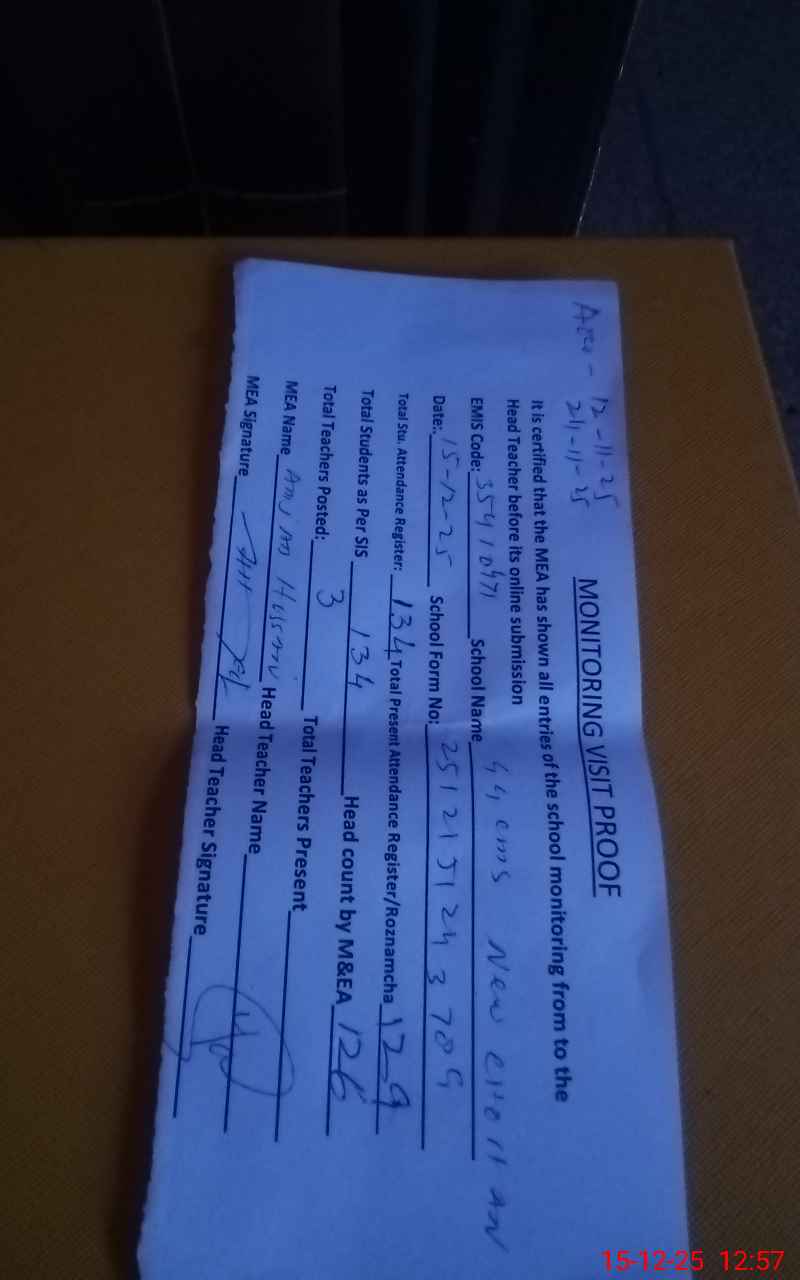 12-11-25
24-11-25
MONITORING VISIT PROOF
It is certified that the MEA has shown all entries of the school monitoring from to the
Head Teacher before its online submission
EMIS Code: 35410471 School Name
Date:. 15-12-25 School Form No:
Total Stu. Attendance Register: 134 Total Present Attendance Register/Roznamcha 129
Total Students as Per SIS 134 Head count by M&EA 126
Total Teachers Posted: 3 Total Teachers Present
MEA Name Hussain Head Teacher Name
MEA Signature Head Teacher Signature
15-12-25 12:57